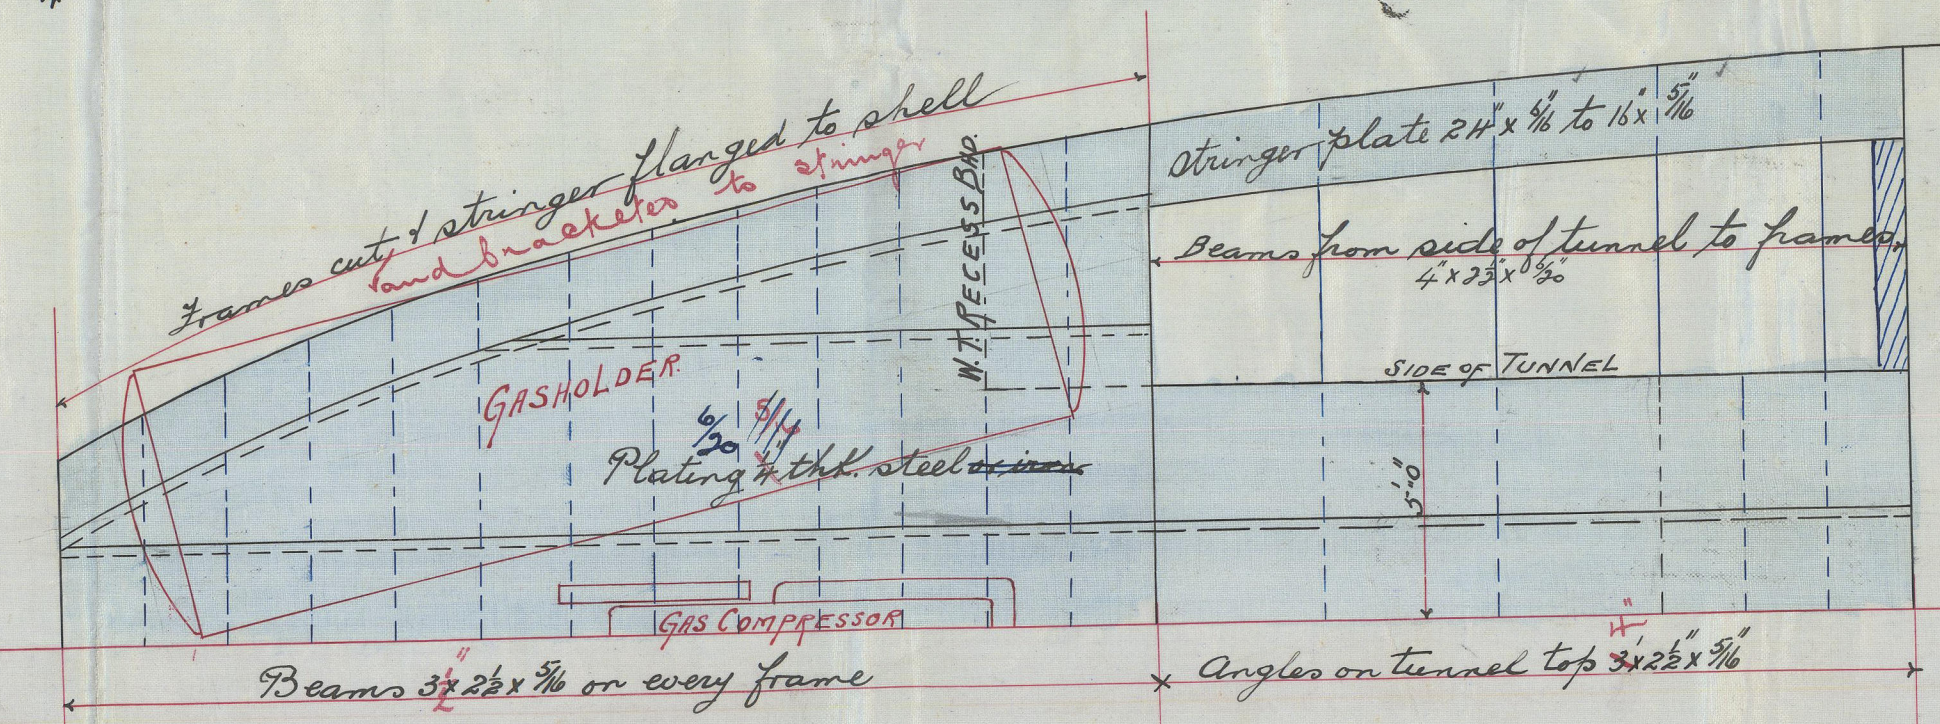 Frames cut, & stringer flanged to shell
and brackets to stringer
W.T. RECESS BHD.
Stringer plate 24" x 6/16 to 16" x 5/16"
Beams from side of tunnel to frames.
4" x 2½" x 6/20"
SIDE OF TUNNEL
GASHOLDER.
6/20
Plating ¼" thk. steel or iron
5'-0"
GAS COMPRESSOR
Beams 3½" x 2½ x 5/16 on every frame
4"
Angles on tunnel top 3 x 2½" x 5/16"